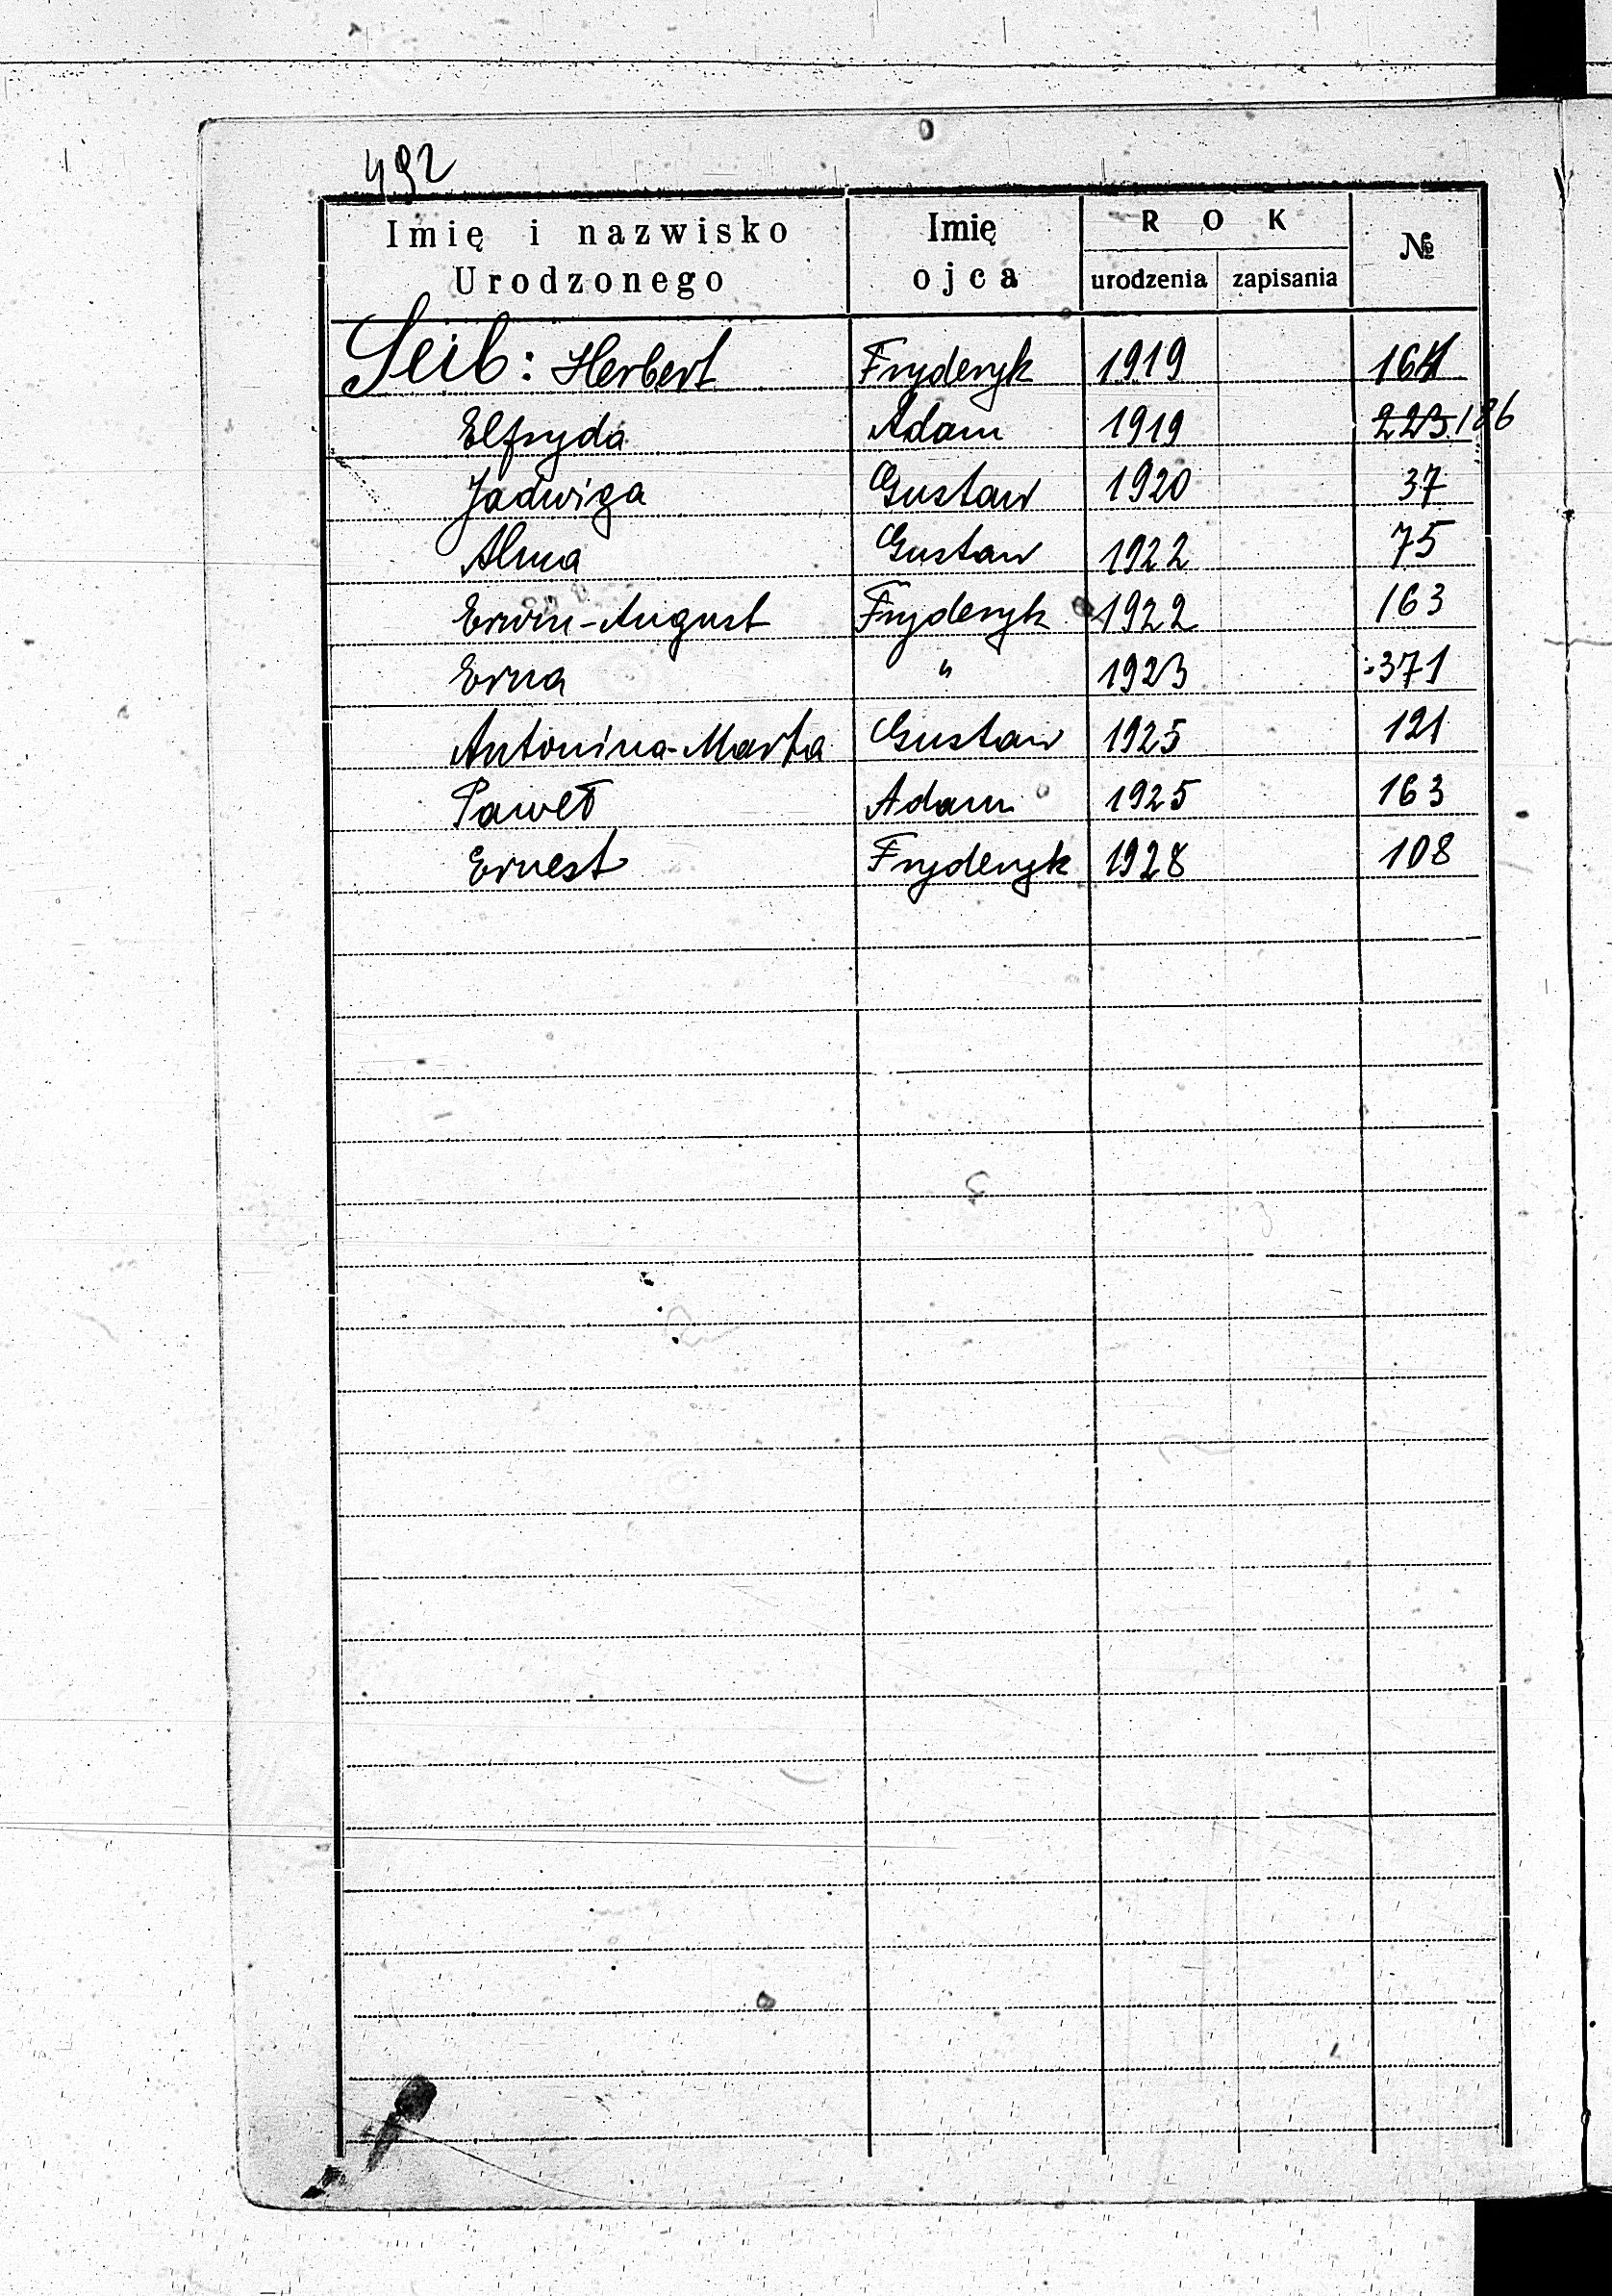 492
Imię i nazwisko Urodzonego Imię ojca ROK urodzenia zapisania №
Seib: Herbert Fryderyk 1919 164
Elfryda Adam 1919 223 186
Jadwiga Gustaw 1920 37
Alma Gustaw 1922 75
Erwin-August Fryderyk 1922 163
Erna " 1923 371
Antonina-Marta Gustaw 1925 121
Paweł Adam 1925 163
Ernest Fryderyk 1928 108